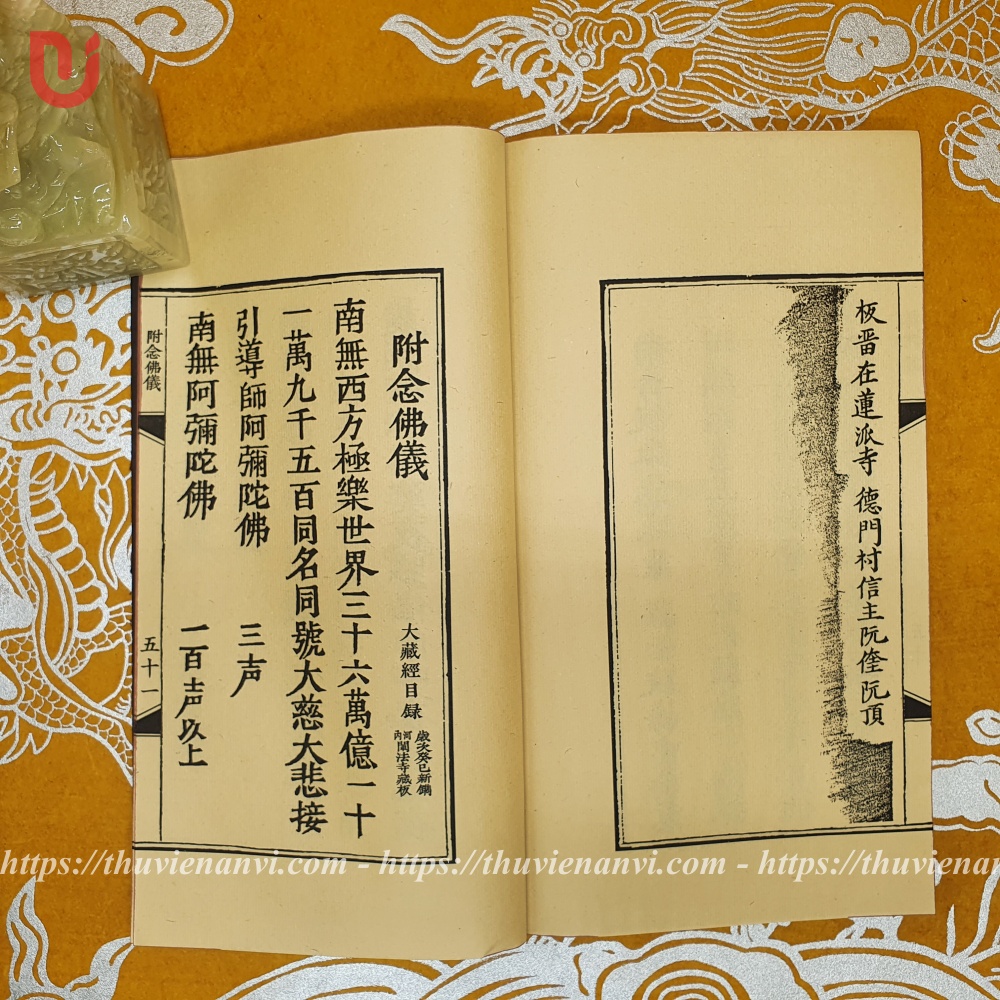 板晋在蓮派寺 德門村信主阮㑺阮頂
附念佛儀
大藏經目録
歲次癸巳新鐫
河内闍法寺藏板
南無西方極樂世界三十六萬億一十
一萬九千五百同名同號大慈大悲接
引導師阿彌陀佛 三声
南無阿彌陀佛 一百声以上
附念佛儀
五十一
https://thuvienanvi.com - https://thuvienanvi.com - https://thuviena